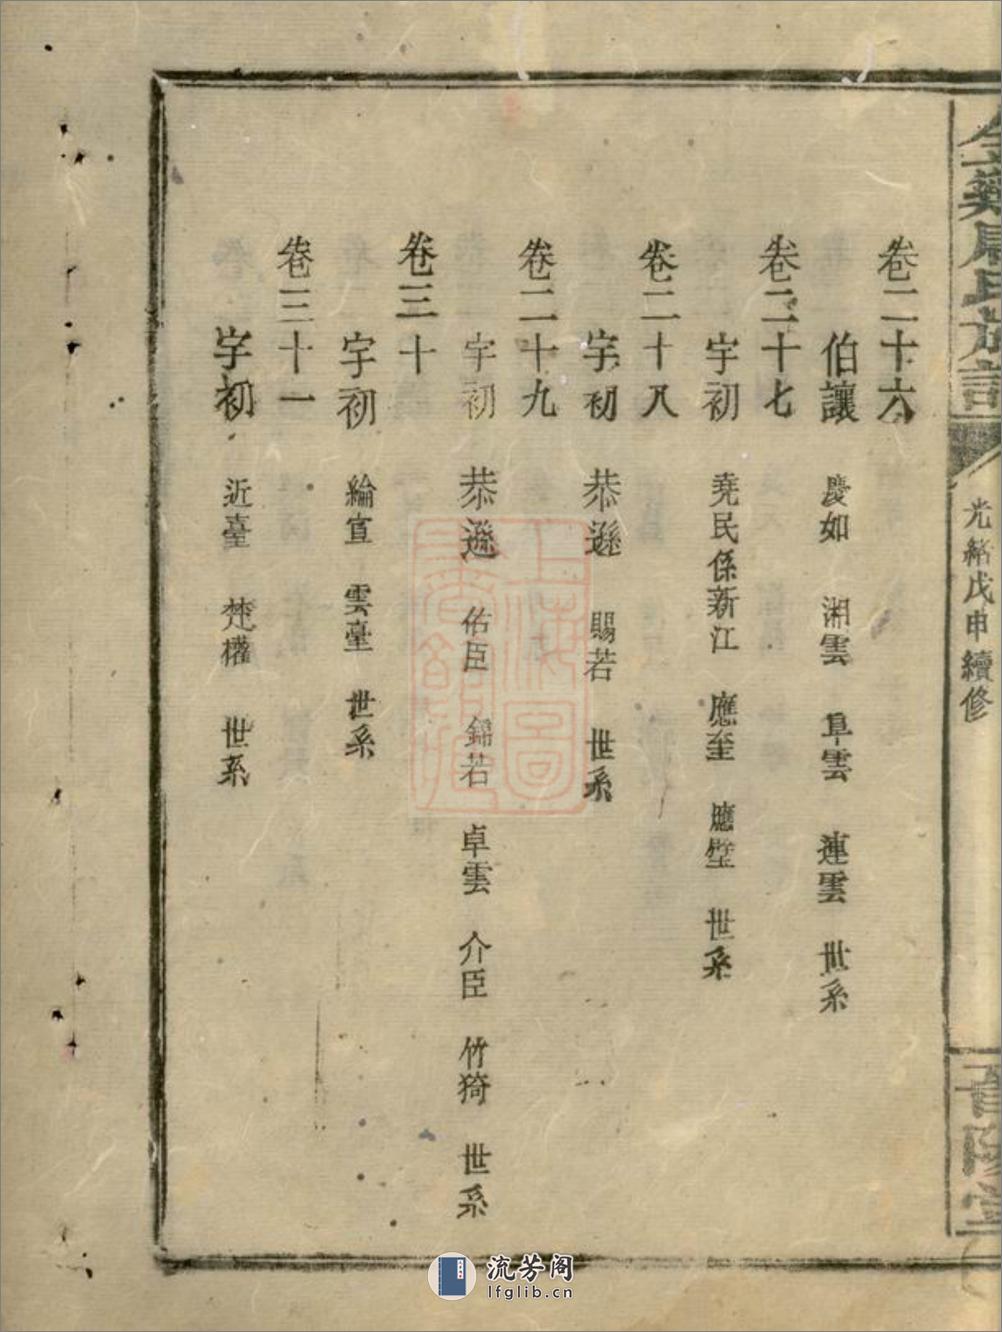 族譜
光緒戊申續修
卷二十六
伯讓 慶如 湘雲 阜雲 連雲 世系
卷二十七
字初 堯民係新江 應至 應璧 世系
卷二十八
字初 恭遜 賜若 世系
卷二十九
字初 恭遜 佑臣 錦若 卓雲 介臣 竹猗 世系
卷三十
字初 綸宣 雲臺 世系
卷三十一
字初 近臺 楚權 世系
流芳阁
lfglib.cn